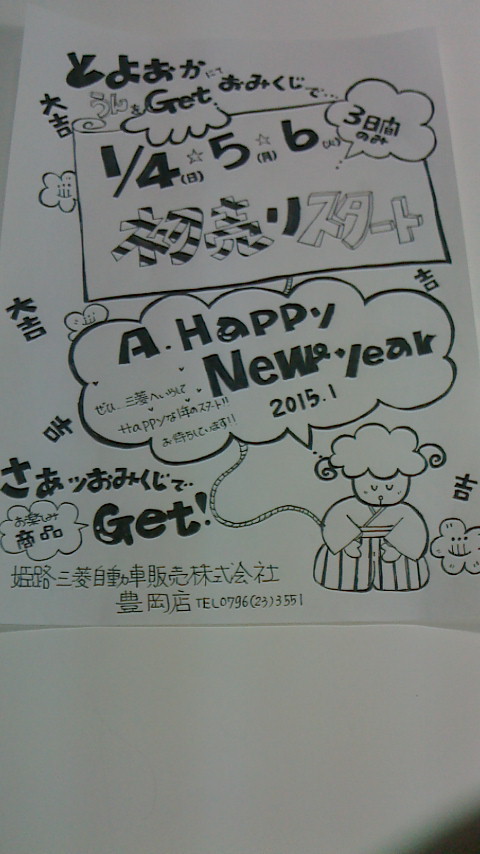 とよおかにて
うんをGet おみくじで…
大吉
3日間のみ
1/4(日)☆5(月)☆6(火)
初売りスタート
大吉
吉
A. Happy
New Year
2015.1
ぜひ…三菱へいらして
Happyな1年のスタート!!
お待ちしています!!
吉
さぁッおみくじで…
Get!
お楽しみ
商品
吉
姫路三菱自動車販売株式会社
豊岡店 TEL0796(23)3551